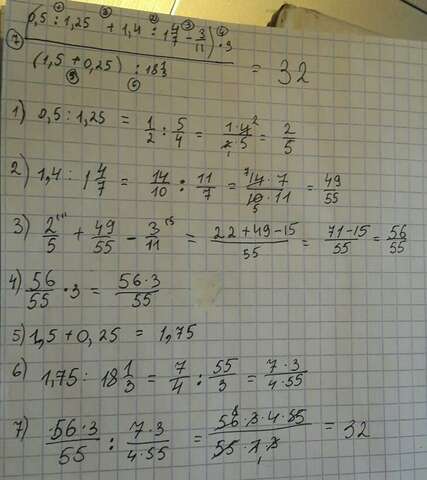 (0,5 : 1,25 + 1,4 : 1 4/7 - 3/11) · 3
① ③ ② ③ ④
⑦ = 32
(1,5 + 0,25) : 18 1/3
⑤ ⑥
1) 0,5 : 1,25 = 1/2 : 5/4 = 1·4²/2₁·5 = 2/5
2) 1,4 : 1 4/7 = 14/10 : 11/7 = ⁷14·7/10₅·11 = 49/55
3) 2/5 + 49/55 - 3/11 = 22+49-15/55 = 71-15/55 = 56/55
4) 56/55 · 3 = 56·3/55
5) 1,5 + 0,25 = 1,75
6) 1,75 : 18 1/3 = 7/4 : 55/3 = 7·3/4·55
7) 56·3/55 : 7·3/4·55 = 56⁸·3·4·55/55·7₁·3 = 32